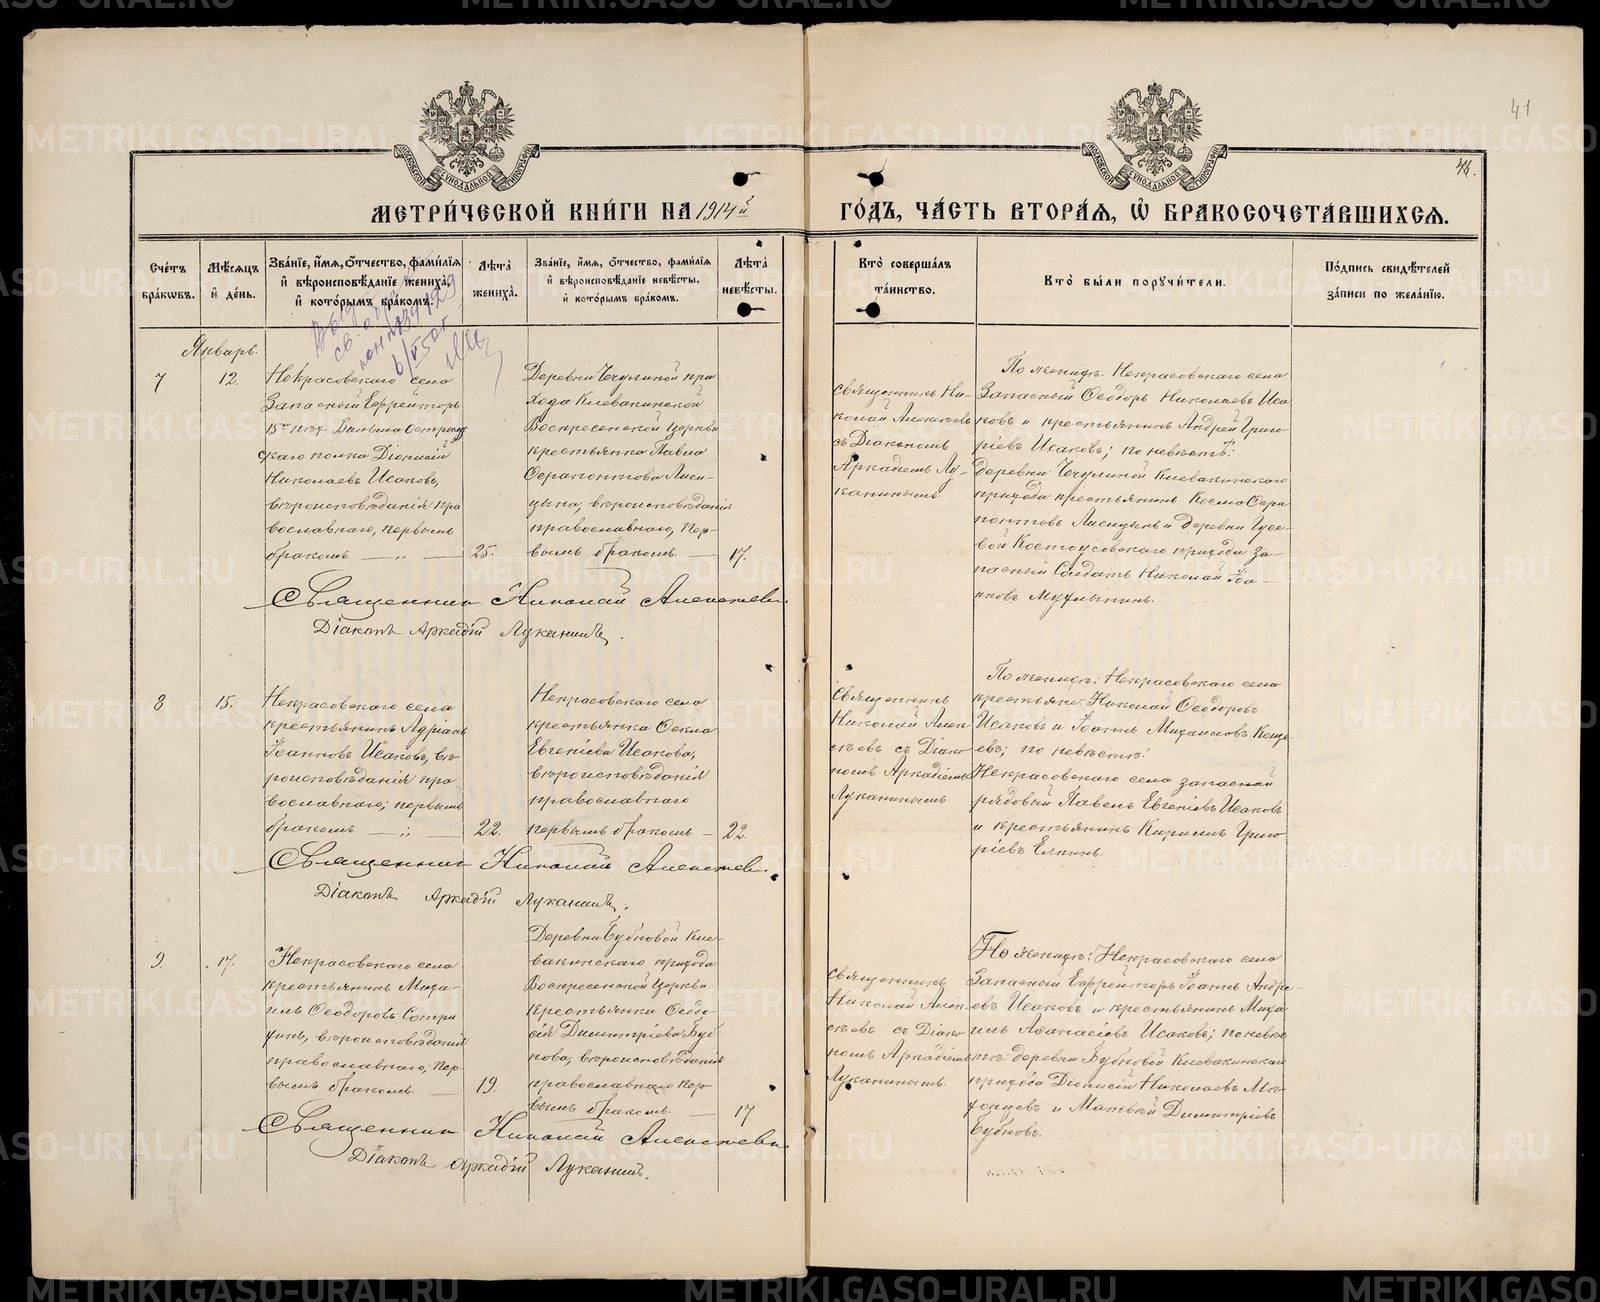 41
46.
МЕТРИ́ЧЕСКОЙ КНИ́ГИ НА 1914й
ГО́ДЪ, ЧА́СТЬ ВТОРА́Я, Ѡ БРАКОСОЧЕТА́ВШИХСЯ.
Сче́тъ бра́кѡвъ.
Мѣ́сяцъ и де́нь.
Зва́нїе, и́мя, ѻ́тчество, фами́лїя
и вѣроисповѣ́данїе жениха̀,
и кото́рымъ бра́комъ.
Лѣ́та жениха̀.
Зва́нїе, и́мя, ѻ́тчество, фами́лїя
и вѣроисповѣ́данїе невѣ́сты,
и кото́рымъ бра́комъ.
Лѣ́та невѣ́сты.
Кто̀ соверша́лъ
та́инство.
Кто̀ бы́ли порꙋчи́тели.
По́дпись свидѣ́телей
за́писи по жела́нїю.
Январь.
7
12.
Некрасовскаго села
Запасный Ефрейторъ
15го пѣх.
скаго полка Діонисій
Николаевъ Исаковъ,
вѣроисповѣданія пра
вославнаго, первымъ
бракомъ — „ —
25.
Деревни Чечулиной при
хода Клевакинской
Воскресенской церкви
крестьянка Павла
Серапіонтова Лиси-
цына, вѣроисповѣданія
православнаго, пер-
вымъ бракомъ —
17.
Священникъ Ни-
колай Алексѣевъ
съ Діакономъ
Аркадіемъ Лу-
канинымъ
По женихѣ: Некрасовскаго села
Запасный Ѳеодоръ Николаевъ Иса
ковъ и крестьянинъ Андрей Григо-
ріевъ Исаковъ; по невѣстѣ:
деревни Чечулиной Клевакинскаго
прихода крестьянинъ Косма Сера
понтовъ Лисицынъ и деревни Гусе-
вой Костоусовскаго прихода за-
пасный Солдатъ Николай Іоа-
нновъ
Священникъ Николай Алексѣевъ.
Діаконъ Аркадій Луканинъ.
8
15.
Некрасовскаго села
крестьянинъ Адріанъ
Іоанновъ Исаковъ, вѣ-
роисповѣданія пра
вославнаго; первымъ
бракомъ — „ —
22.
Некрасовскаго села
крестьянка Ѳекла
Евгеніева Исакова,
вѣроисповѣданія
православнаго
первымъ бракомъ —
22.
Священникъ
Николай Алек-
сѣевъ съ Діако-
номъ Аркадіемъ
Луканинымъ
По женихѣ: Некрасовскаго села
крестьяне: Николай Ѳеодоровъ
Исаковъ и Іоаннъ Михаиловъ Коще
евъ; по невѣстѣ:
Некрасовскаго села запасный
рядовый Павелъ Евгеніевъ Исаковъ
и крестьянинъ Кириллъ Григо-
ріевъ Елькинъ.
Священникъ Николай Алексѣевъ.
Діаконъ Аркадій Луканинъ.
9.
17.
Некрасовскаго села
крестьянинъ Миха-
илъ Ѳеодоровъ Сотри
хинъ, вѣроисповѣданія
православнаго, пер-
вымъ бракомъ —
19.
Деревни Бубновой Кле-
вакинскаго прихода
Воскресенской церкви
крестьянка Ѳеодо-
сія Димитріева Буб
нова, вѣроисповѣданія
православнаго пер-
вымъ бракомъ —
17
Священникъ
Николай Алек-
сѣевъ съ Діако-
номъ Аркадіемъ
Луканинымъ.
По женихѣ: Некрасовскаго села
Запасный Ефрейторъ Іоаннъ Андре-
евъ Исаковъ и крестьянинъ Миха-
илъ Аѳанасіевъ Исаковъ; по невѣс
тѣ: деревни Бубновой Клевакинскаго
прихода Діонисій Николаевъ
и Матвѣй Димитріевъ
Бубновъ.
Священникъ Николай Алексѣевъ.
Діаконъ Аркадій Луканинъ.
METRIKI.GASO-URAL.RU